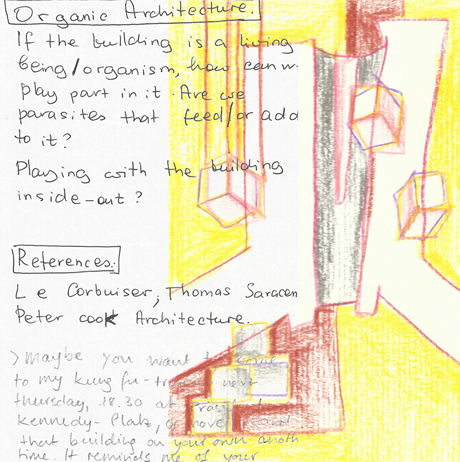 Organic Architecture.
If the building is a living
being/organism, how can w
play part in it. Are we
parasites that feed/or add
to it?
Playing with the building
inside-out?
References:
Le Corbuiser, Thomas Saracen
Peter cook Architecture.
> Maybe you want to come
to my kung fu-tr next
thursday, 18.30 at
Kennedy-Platz, or
that building on your own anoth
time. It reminds me of your